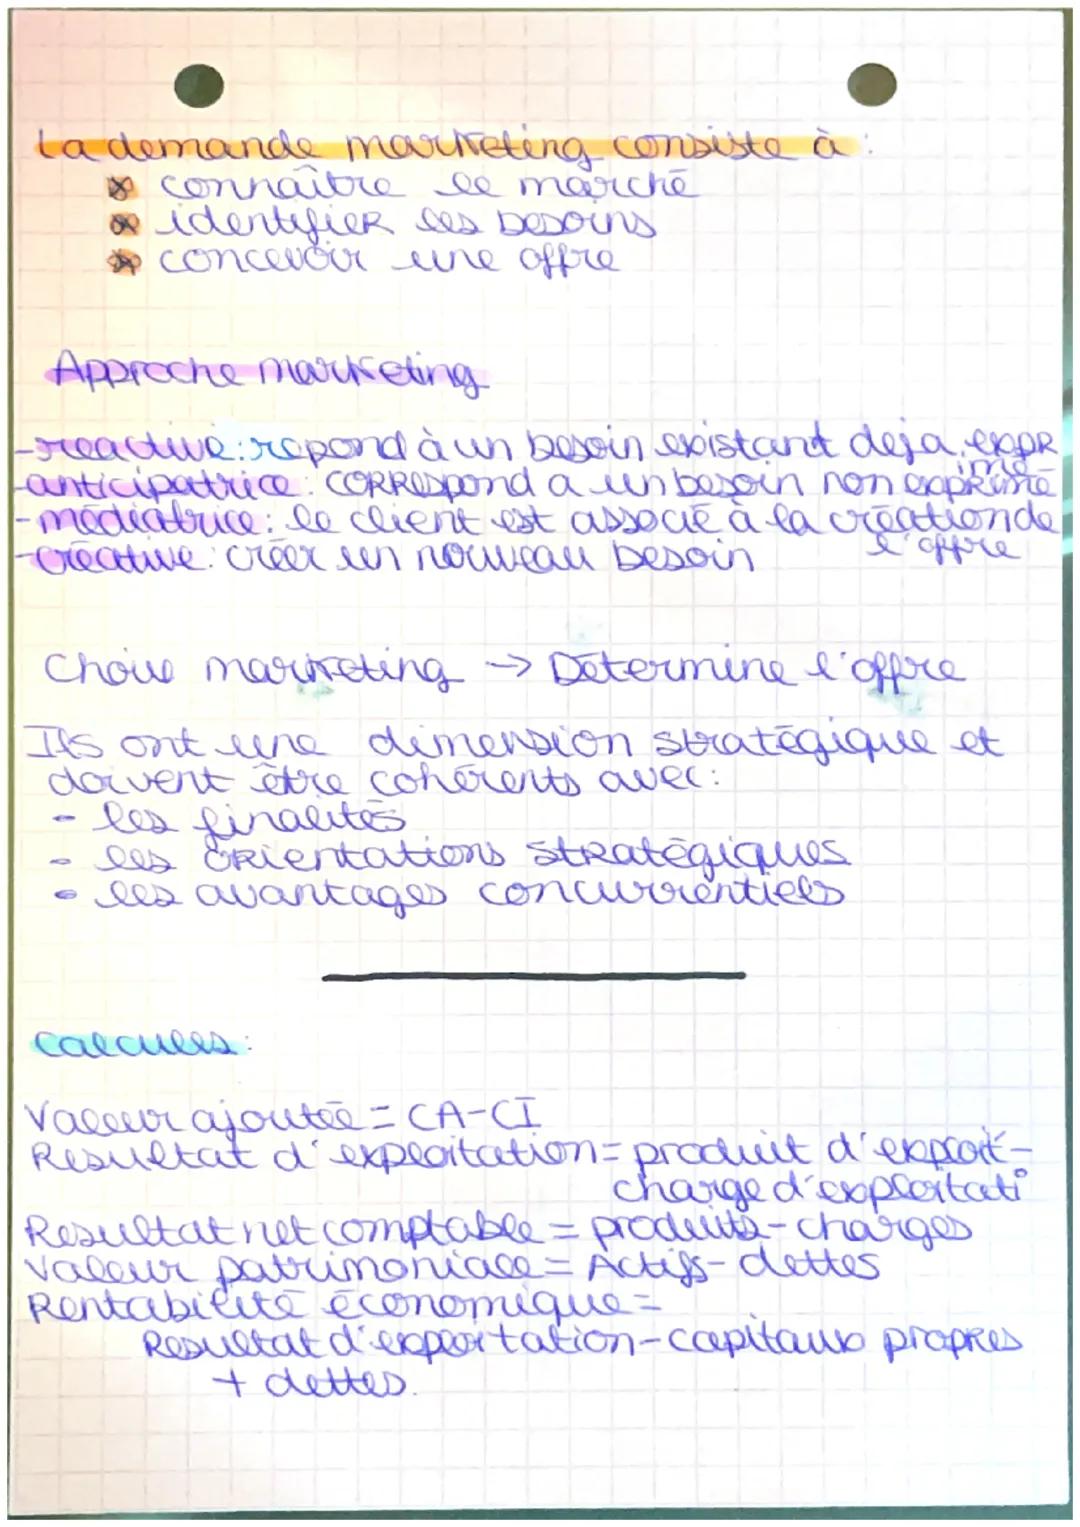 La demande marketing consiste à :
connaître le marché
identifier les besoins
concevoir une offre
Approche marketing
- reactive : repond à un besoin existant deja expr
imé
- anticipatrice : correspond a un besoin non exprimé
- médiatrice : le client est associé à la création de
l'offre
- créative : créer un nouveau besoin
Choix marketing → Détermine l'offre
Ils ont une dimension stratégique et
doivent être cohérents avec :
- les finalités
- les orientations stratégiques
- les avantages concurrentiels
Calcules :
Valeur ajoutée = CA-CI
Resultat d'exploitation = produit d'exploit -
charge d'exploitati°
Resultat net comptable = produits - charges
Valeur patrimoniale = Actifs - dettes
Rentabilité économique =
Resultat d'exploitation - capitaux propres
+ dettes.